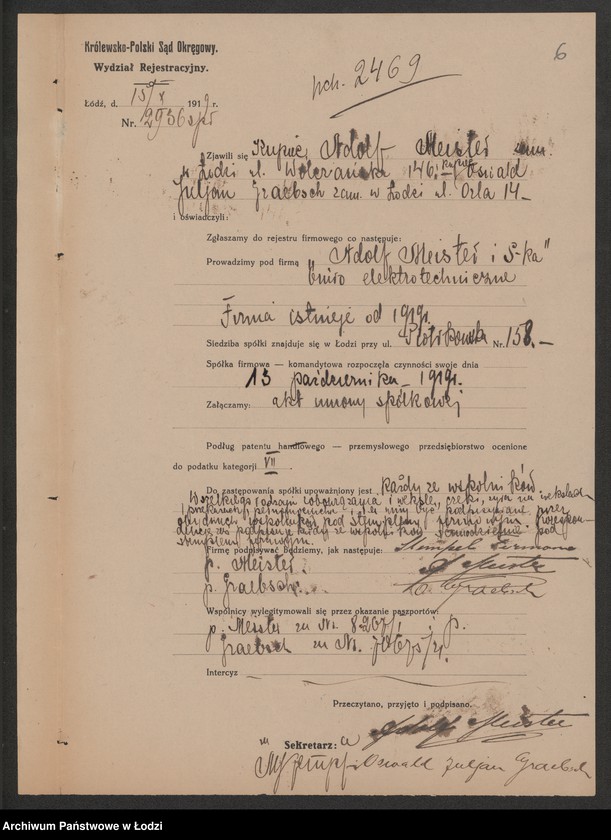 Królewsko-Polski Sąd Okręgowy.
6
Wydział Rejestracyjny.
pch. 2469
Łódź, d. 15/X 1919 r.
Nr. 2936 spł
Zjawili się Kupiec Adolf Meister zam.
w Łodzi ul. Wólczańska 146 i kupiec Oswald
Juljan Graebsch zam. w Łodzi ul. Orla 14 –
i oświadczyli:
Zgłaszamy do rejestru firmowego co następuje:
Prowadzimy pod firmą „Adolf Meister i S-ka"
biuro elektrotechniczne
Firma istnieje od 1919 r.
Siedziba spółki znajduje się w Łodzi przy ul. Piotrkowska Nr. 158. –
Spółka firmowa — komandytowa rozpoczęła czynności swoje dnia
13 października – 1919 r.
Załączamy: akt umowy spółkowej
Podług patentu handlowego — przemysłowego przedsiębiorstwo ocenione
do podatku kategorji VII.
Do zastępowania spółki upoważniony jest każdy ze wspólników.
Wszelkiego rodzaju zobowiązania i weksle, czeki,
winny być podpisywane przez
obydwuch wspólników pod stemplem firmowym.
każdy ze wspólników samodzielnie pod
stemplem firmowym.
Firmę podpisywać będziemy, jak następuje: Stempel firmowy
p. Meister. A. Meister
p. Graebsch. O. Graebsch
Wspólnicy wylegitymowali się przez okazanie paszportów:
p. Meister za Nr. i p.
Graebsch za Nr.
Intercyz
Przeczytano, przyjęto i podpisano.
Adolf Meister
Sekretarz:
Oswald Juljan Graebsch
Archiwum Państwowe w Łodzi